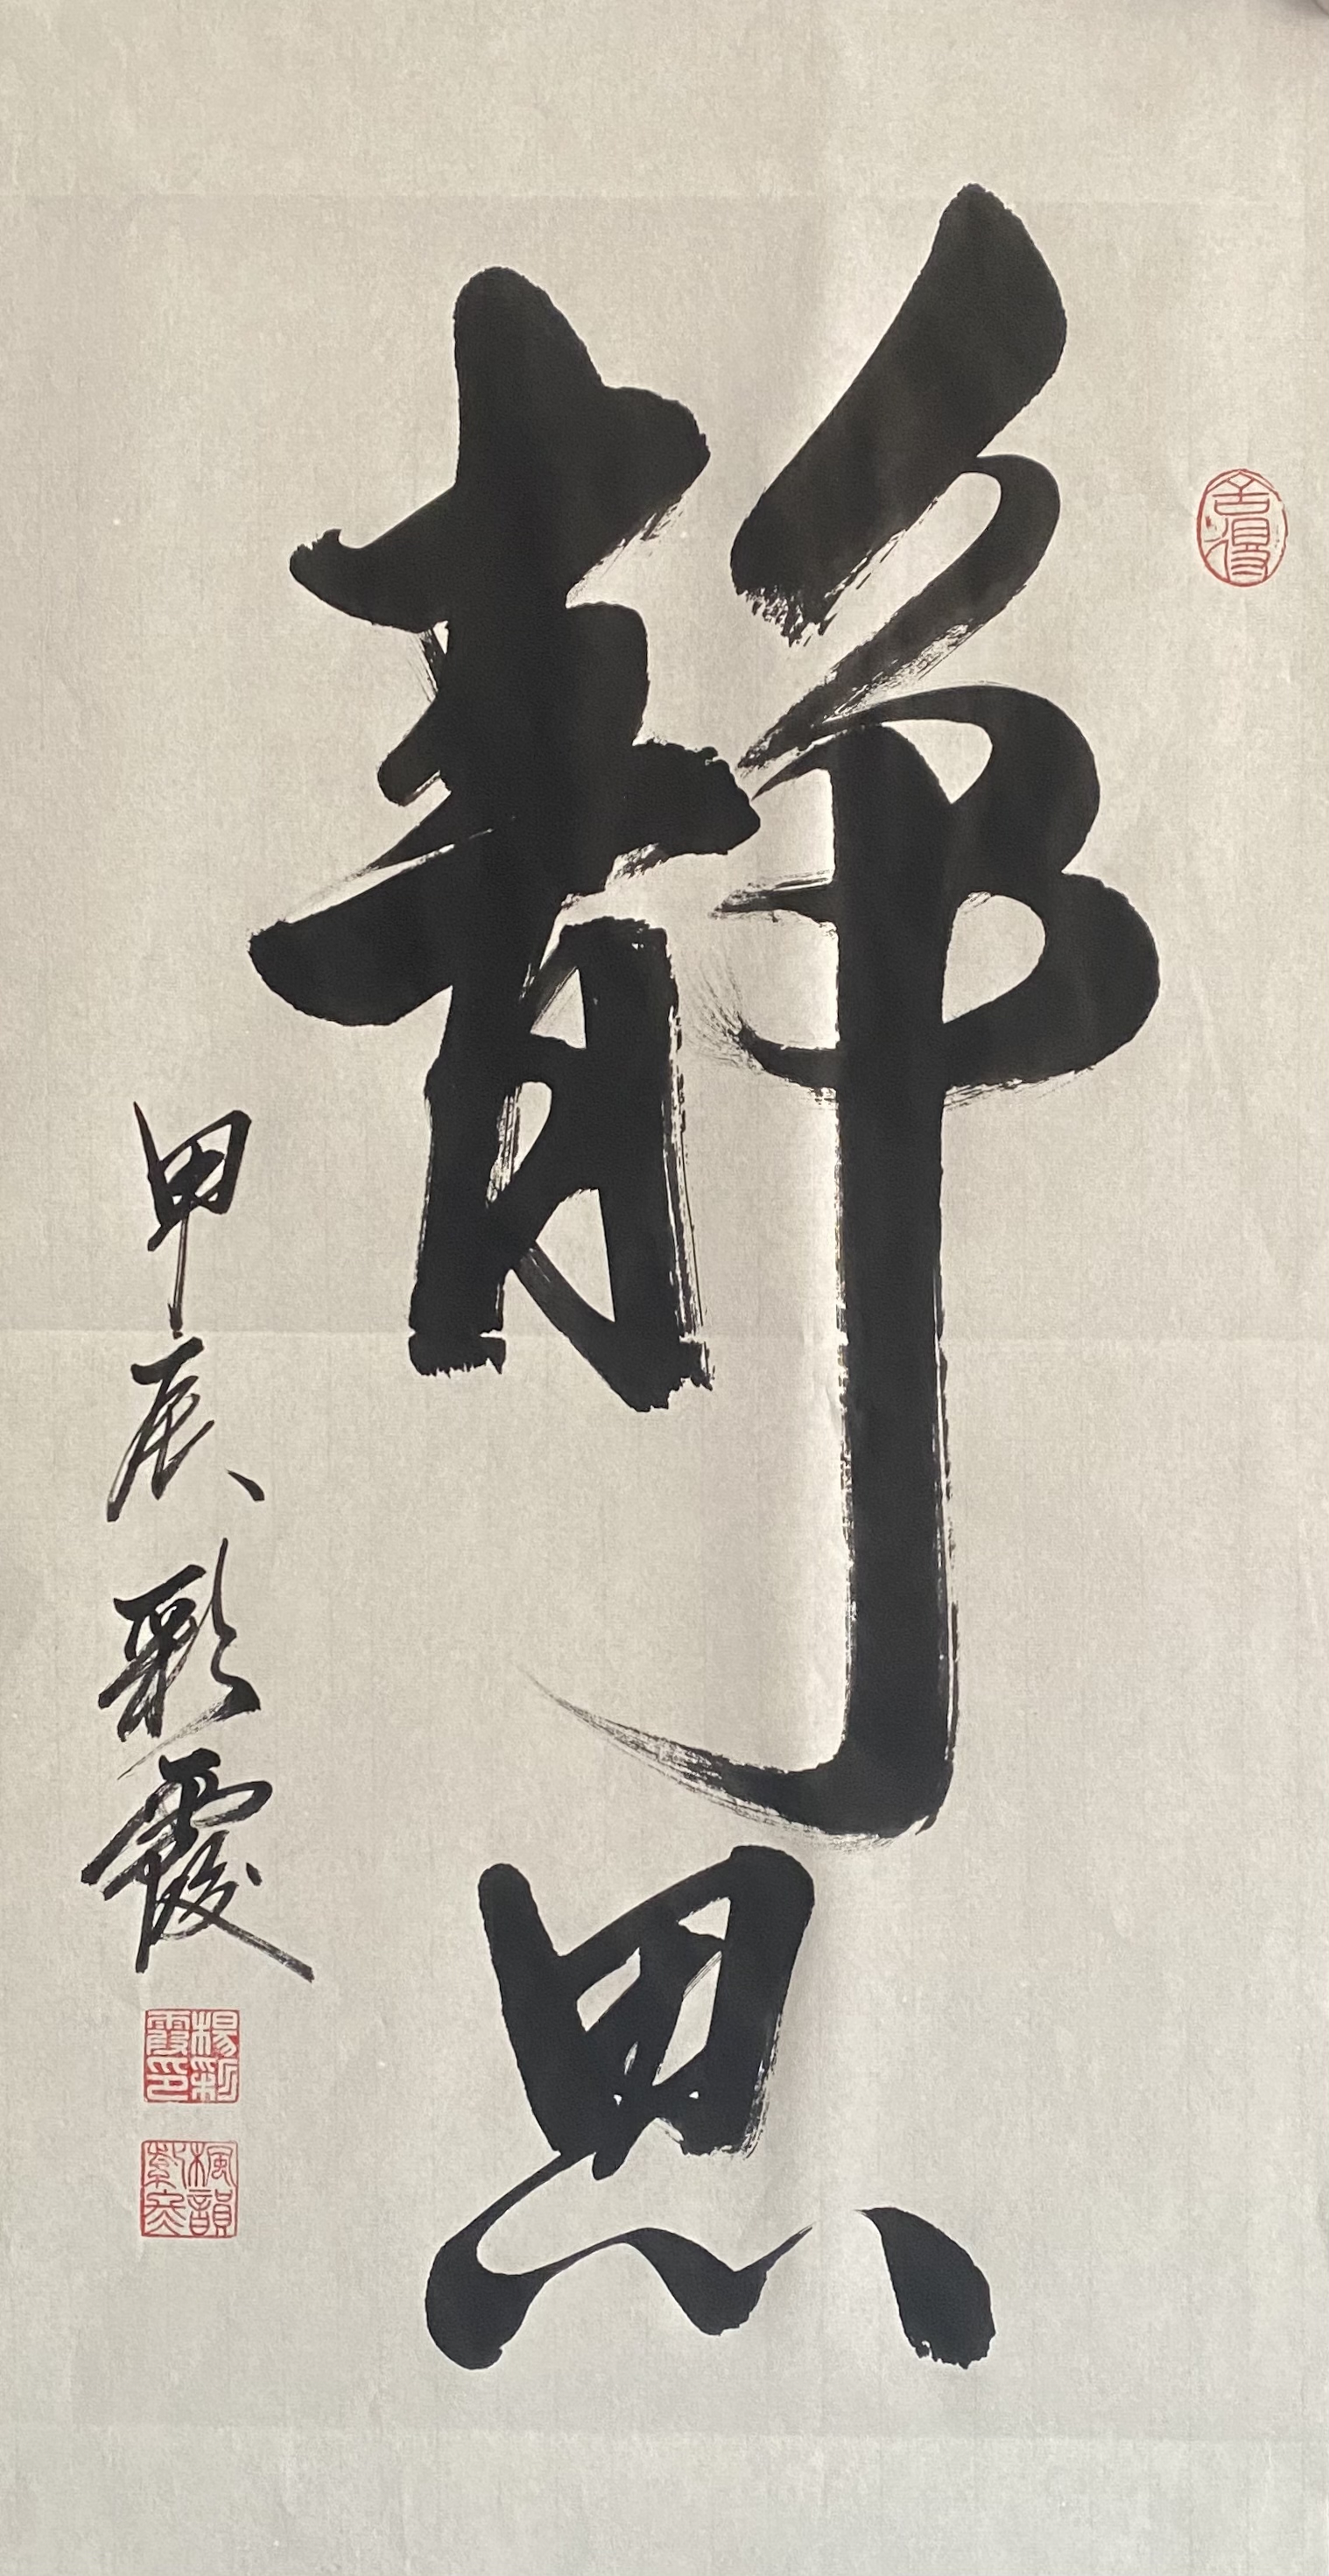 靜思
甲辰 彩霞
楊彩霞印
楓韻紫冬